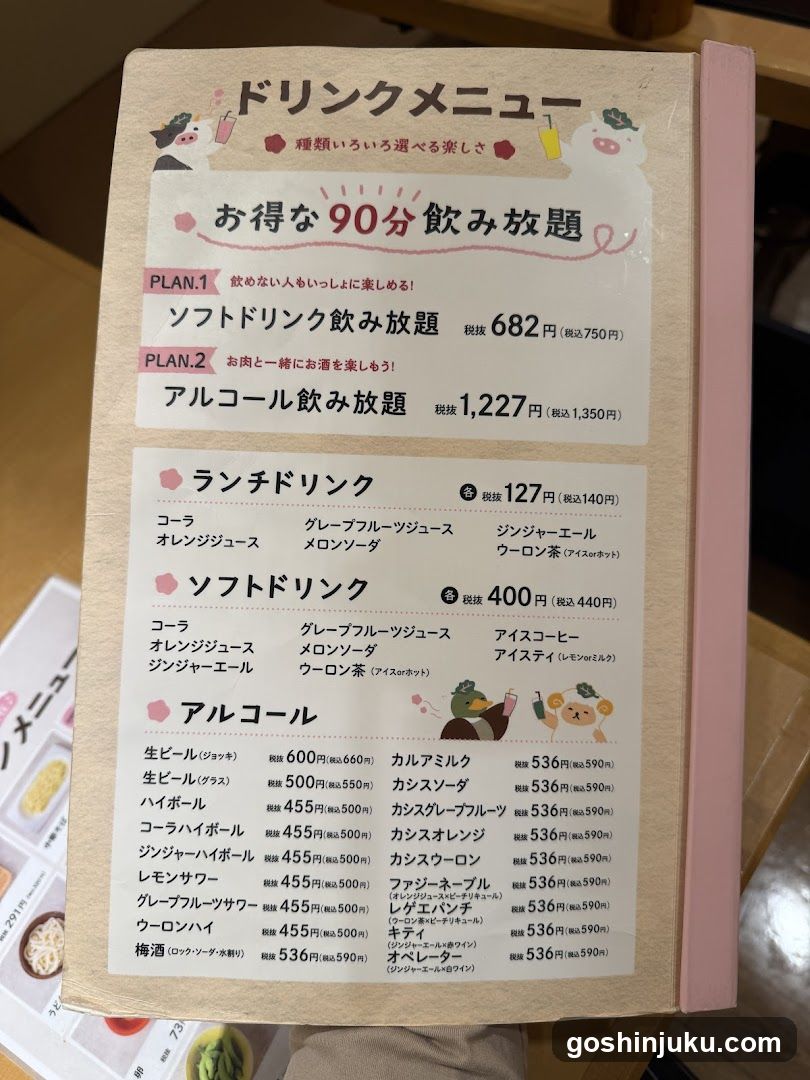 ドリンクメニュー
種類いろいろ選べる楽しさ
お得な90分飲み放題
PLAN.1 飲めない人もいっしょに楽しめる!
ソフトドリンク飲み放題 税抜 682円(税込750円)
PLAN.2 お肉と一緒にお酒を楽しもう!
アルコール飲み放題 税抜 1,227円(税込1,350円)
ランチドリンク 各 税抜 127円(税込140円)
コーラ グレープフルーツジュース ジンジャーエール
オレンジジュース メロンソーダ ウーロン茶(アイスorホット)
ソフトドリンク 各 税抜 400円(税込440円)
コーラ グレープフルーツジュース アイスコーヒー
オレンジジュース メロンソーダ アイスティ(レモンorミルク)
ジンジャーエール ウーロン茶(アイスorホット)
アルコール
生ビール(ジョッキ) 税抜 600円(税込660円)
生ビール(グラス) 税抜 500円(税込550円)
ハイボール 税抜 455円(税込500円)
コーラハイボール 税抜 455円(税込500円)
ジンジャーハイボール 税抜 455円(税込500円)
レモンサワー 税抜 455円(税込500円)
グレープフルーツサワー 税抜 455円(税込500円)
ウーロンハイ 税抜 455円(税込500円)
梅酒(ロック・ソーダ・水割り) 税抜 536円(税込590円)
カルアミルク 税抜 536円(税込590円)
カシスソーダ 税抜 536円(税込590円)
カシスグレープフルーツ 税抜 536円(税込590円)
カシスオレンジ 税抜 536円(税込590円)
カシスウーロン 税抜 536円(税込590円)
ファジーネーブル 税抜 536円(税込590円)
(オレンジジュース×ピーチリキュール)
レゲエパンチ 税抜 536円(税込590円)
(ウーロン茶×ピーチリキュール)
キティ 税抜 536円(税込590円)
(ジンジャーエール×赤ワイン)
オペレーター 税抜 536円(税込590円)
(ジンジャーエール×白ワイン)
メニュー
中華そば
税抜 291円
うど
卵
税抜 73
goshinjuku.com